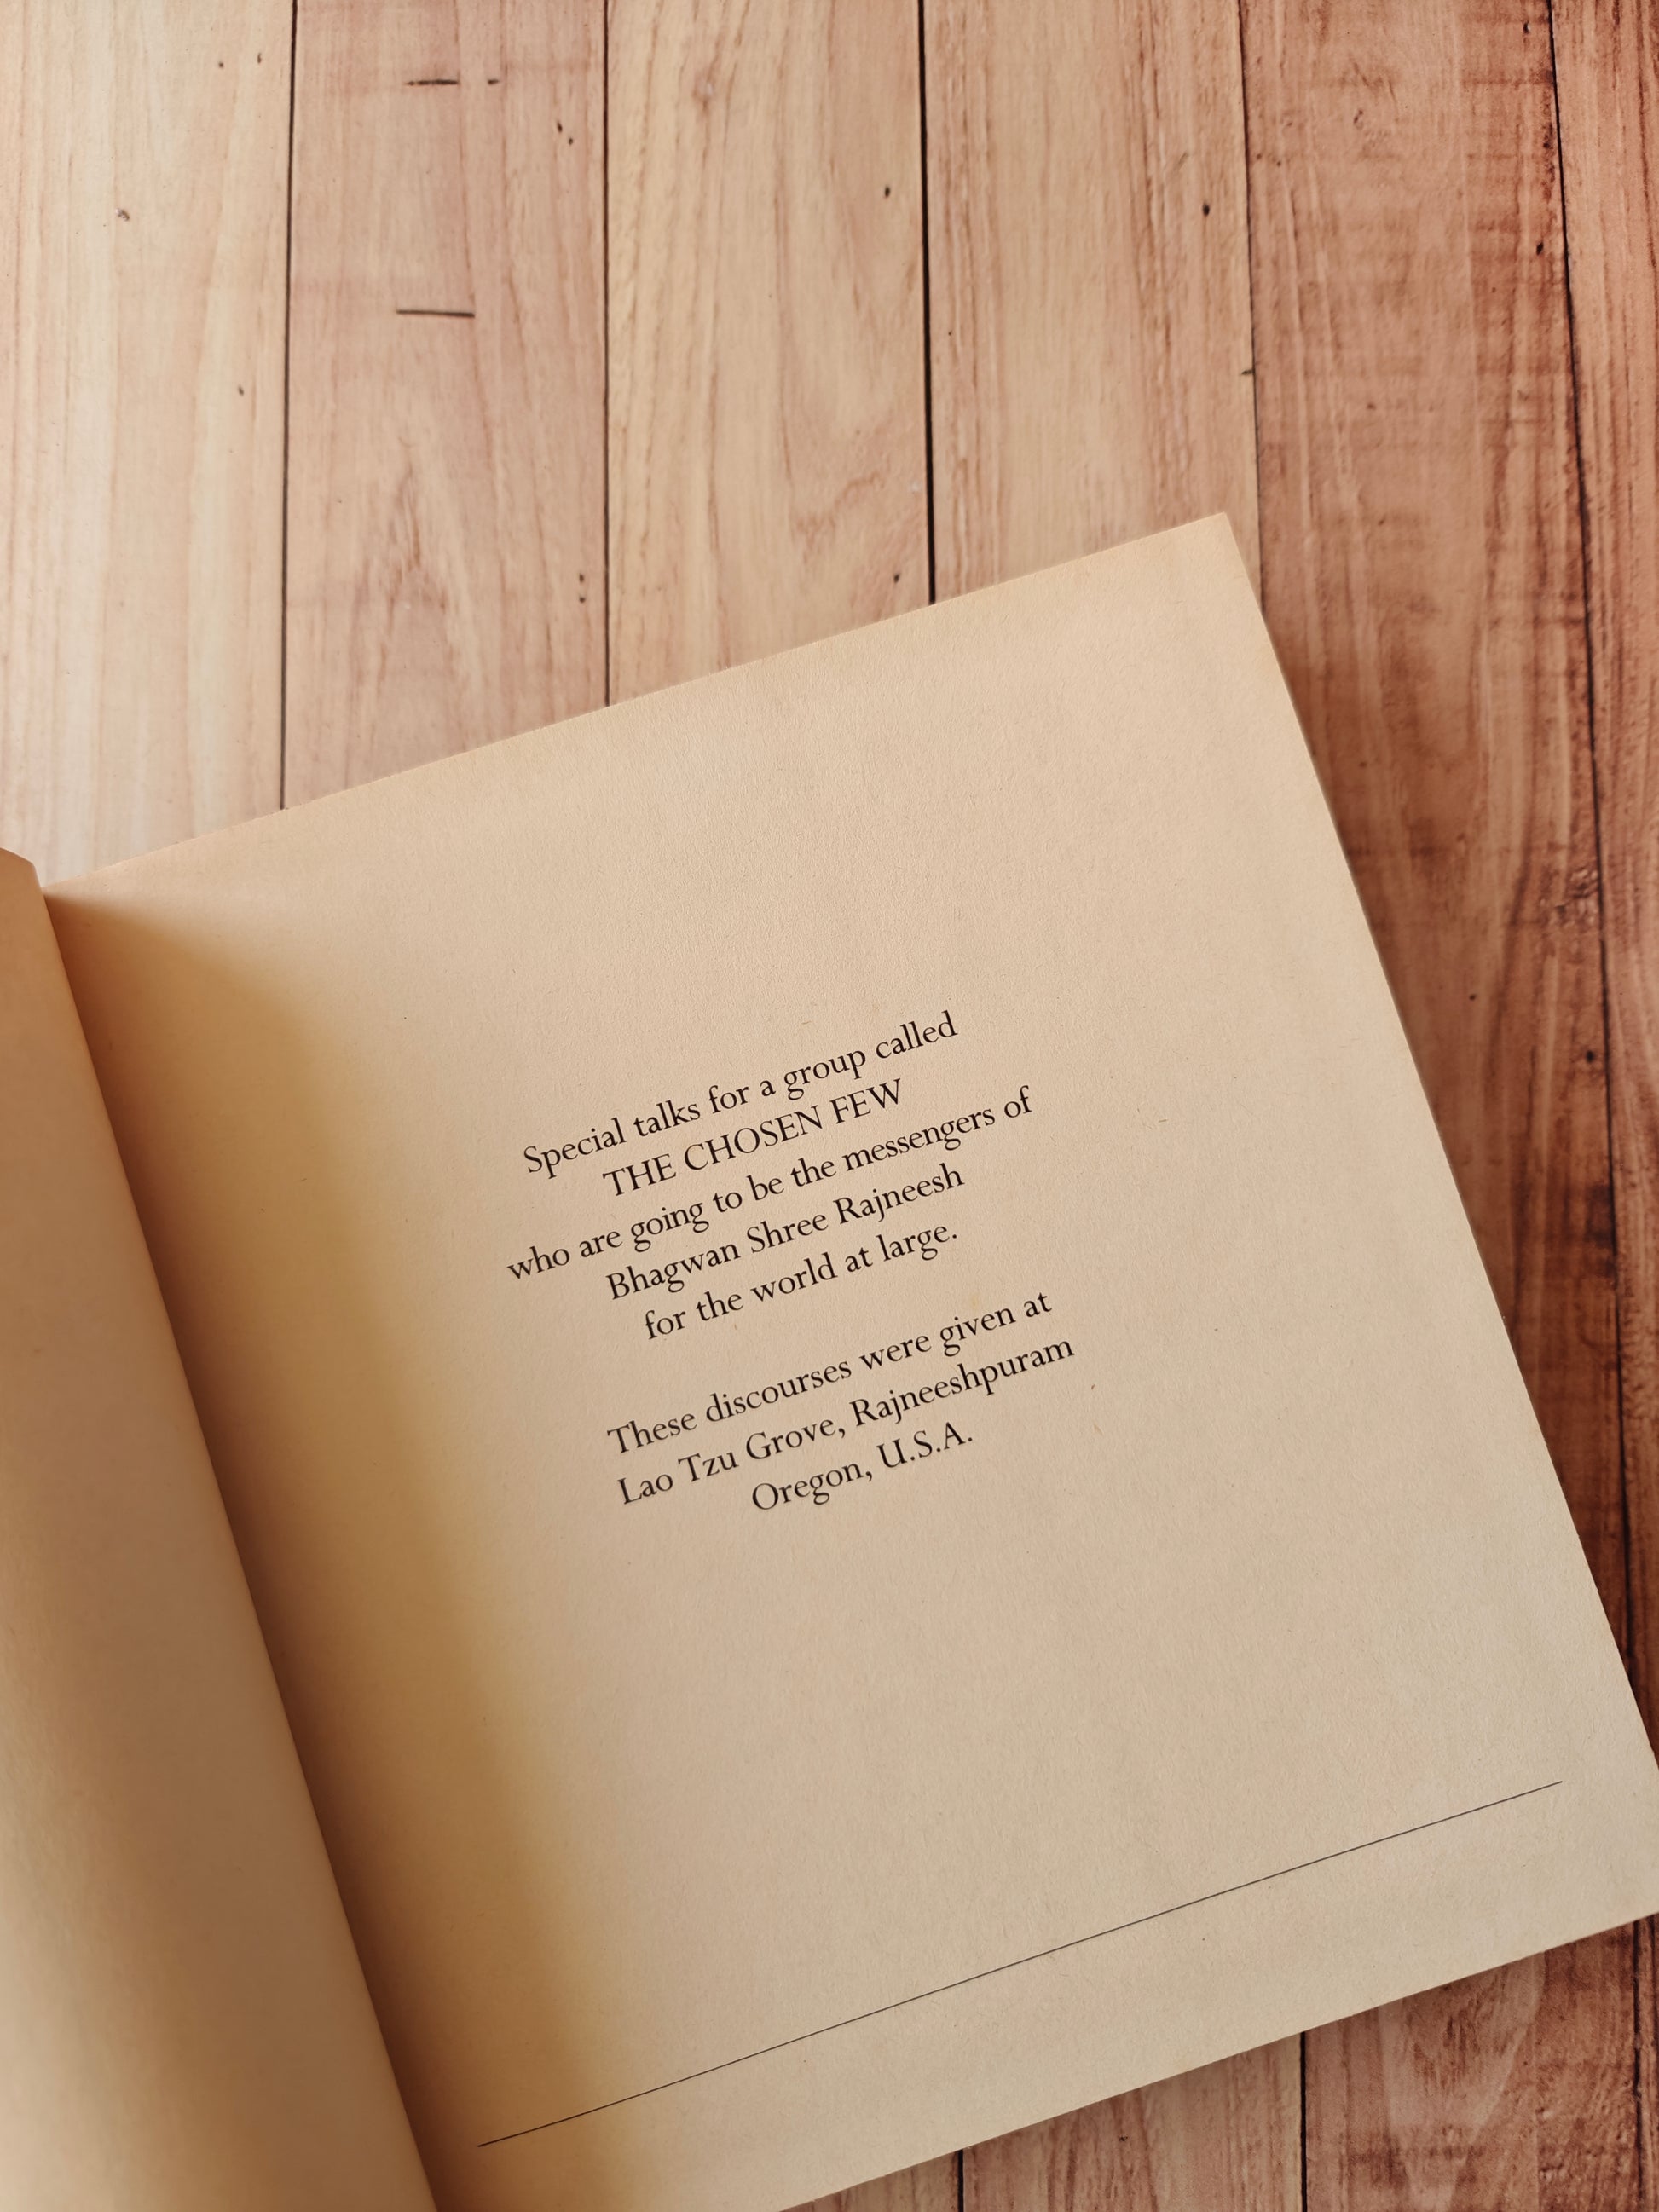 Special talks for a group called
THE CHOSEN FEW
who are going to be the messengers of
Bhagwan Shree Rajneesh
for the world at large.
These discourses were given at
Lao Tzu Grove, Rajneeshpuram
Oregon, U.S.A.